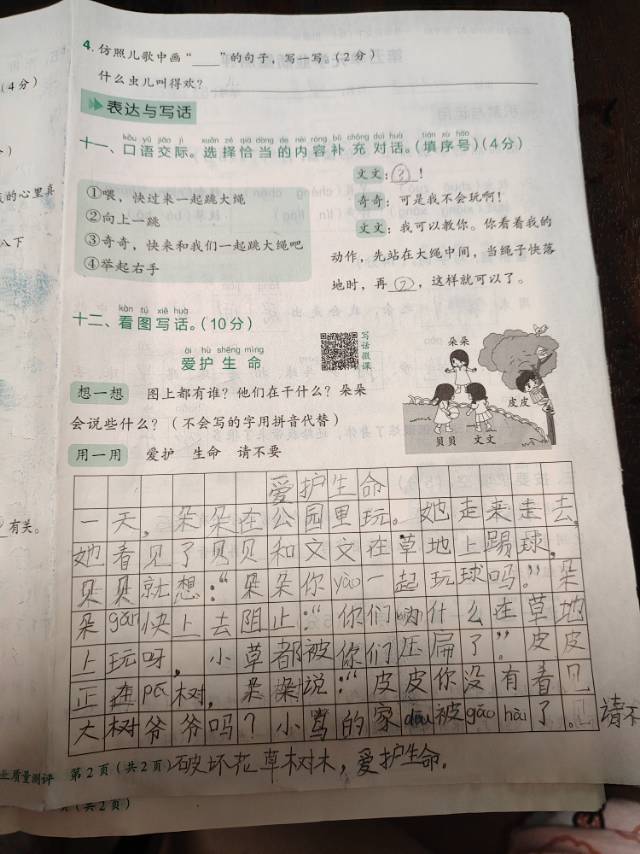 4. 仿照儿歌中画“____”的句子，写一写。(2分)
(4分)
什么虫儿叫得欢？
表达与写话
kǒu yǔ jiāo jì xuǎn zé qià dàng de nèi róng bǔ chōng duì huà tián xù hào
十一、口语交际。选择恰当的内容补充对话。(填序号)(4分)
①喂，快过来一起跳大绳
②向上一跳
③奇奇，快来和我们一起跳大绳吧
④举起右手
文文：③！
奇奇：可是我不会玩啊！
文文：我可以教你。你看着我的
动作，先站在大绳中间，当绳子快落
地时，再②，这样就可以了。
的心里真
八下
有关。
kàn tú xiě huà
十二、看图写话。(10分)
ài hù shēng mìng
爱护生命
写话微课
想一想 图上都有谁？他们在干什么？朵朵
会说些什么？(不会写的字用拼音代替)
用一用 爱护 生命 请不要
朵朵
皮皮
贝贝 文文
爱护生命
一天，朵朵在公园里玩。她走来走去，
她看见了贝贝和文文在草地上踢球，
贝贝就想：“朵朵你yào一起玩球吗。”朵
朵gǎn快上去阻止：“你们为什么在草地
上玩呀，小草都被你们压扁了”皮皮
正在pá树，朵朵说：“皮皮你没有看见
大树爷爷吗？小鸟的家dōu被gǎo hài了。请不
破坏花草树木，爱护生命。
业质量测评 第2页(共2页)
页(共2页)